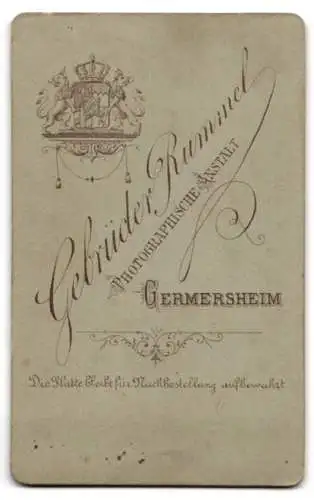 Gebrüder Rummel
Photographische Anstalt
Germersheim
Die Platte bleibt für Nachbestellung aufbewahrt